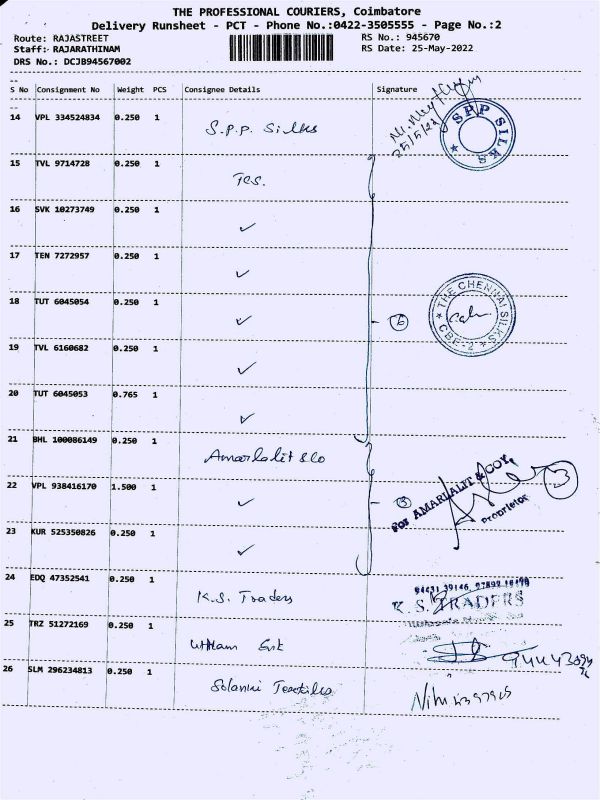 THE PROFESSIONAL COURIERS, Coimbatore
Delivery Runsheet - PCT - Phone No.:0422-3505555 - Page No.:2
Route: RAJASTREET RS No.: 945670
Staff: RAJARATHINAM RS Date: 25-May-2022
DRS No.: DCJB94567002
S No Consignment No Weight PCS Consignee Details Signature
14 VPL 334524834 0.250 1 S.P.P. Silks
25/5/22
SPP SILKS
15 TVL 9714728 0.250 1 TCS.
16 SVK 10273749 0.250 1 ✓
17 TEN 7272957 0.250 1 ✓
18 TUT 6045054 0.250 1 ✓ 6
THE CHENNAI SILKS
CBE-2
19 TVL 6160682 0.250 1 ✓
20 TUT 6045053 0.765 1 ✓
21 BHL 100086149 0.250 1 Amarlalit & Co
22 VPL 938416170 1.500 1 ✓ 3
For AMARLALIT & COY, 3
Proprietor
23 KUR 525350826 0.250 1 ✓
24 EDQ 47352541 0.250 1 K.S. Traders
K. S. TRADERS
25 TRZ 51272169 0.250 1 Uttam
26 SLM 296234813 0.250 1 Solanki Textiles